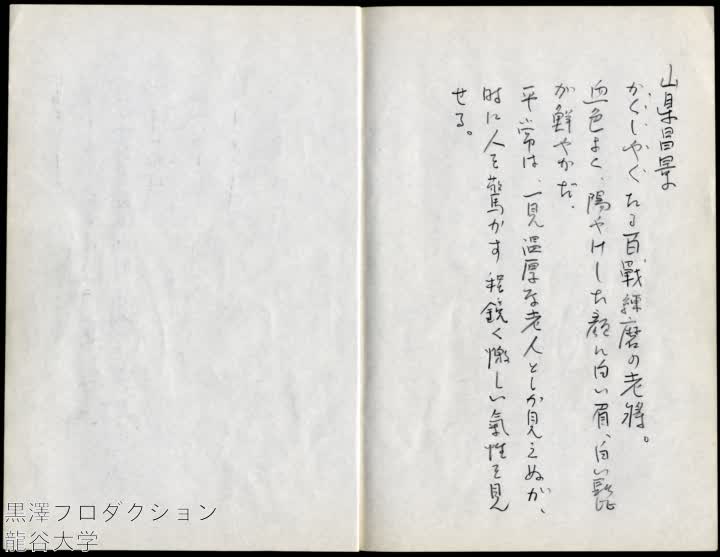 山県昌景
かくしゃくたる百戰練磨の老将。
血色よく、陽やけした顔に白い眉、白い髭
が鮮やかだ。
平常は、一見温厚な老人としか見えぬが、
時に人を驚かす程鋭く激しい氣性を見
せる。
黒澤プロダクション
龍谷大学